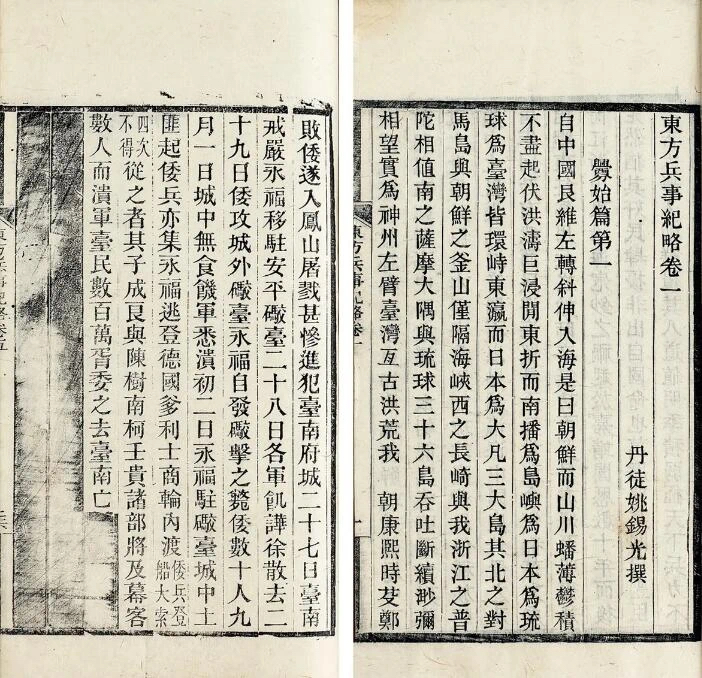 東方兵事紀略卷一
丹徒姚錫光撰
釁始篇第一
自中國艮維左轉斜伸入海是曰朝鮮而山川蟠薄鬱積
不盡起伏洪濤巨浸閒東折而南播爲島嶼爲日本爲琉
球爲臺灣皆環峙東瀛而日本爲大凡三大島其北之對
馬島與朝鮮之釜山僅隔海峽西之長崎與我浙江之普
陀相值南之薩摩大隅與琉球三十六島吞吐斷續渺瀰
相望實爲神州左臂臺灣亙古洪荒我 朝康熙時芟鄭
敗倭遂入鳳山屠戮甚慘進犯臺南府城二十七日臺南
戒嚴永福移駐安平礮臺二十八日各軍飢譁徐散去二
十九日倭攻城外礮臺永福自發礮擊之斃倭數十人九
月一日城中無食饑軍悉潰初二日永福駐礮臺城中土
匪起倭兵亦集永福逃登德國爹利士商輪內渡倭兵登船大索
四次不得從之者其子成良與陳樹南柯壬貴諸部將及幕客
數人而潰軍臺民數百萬胥委之去臺南亡
東方兵事紀略卷五